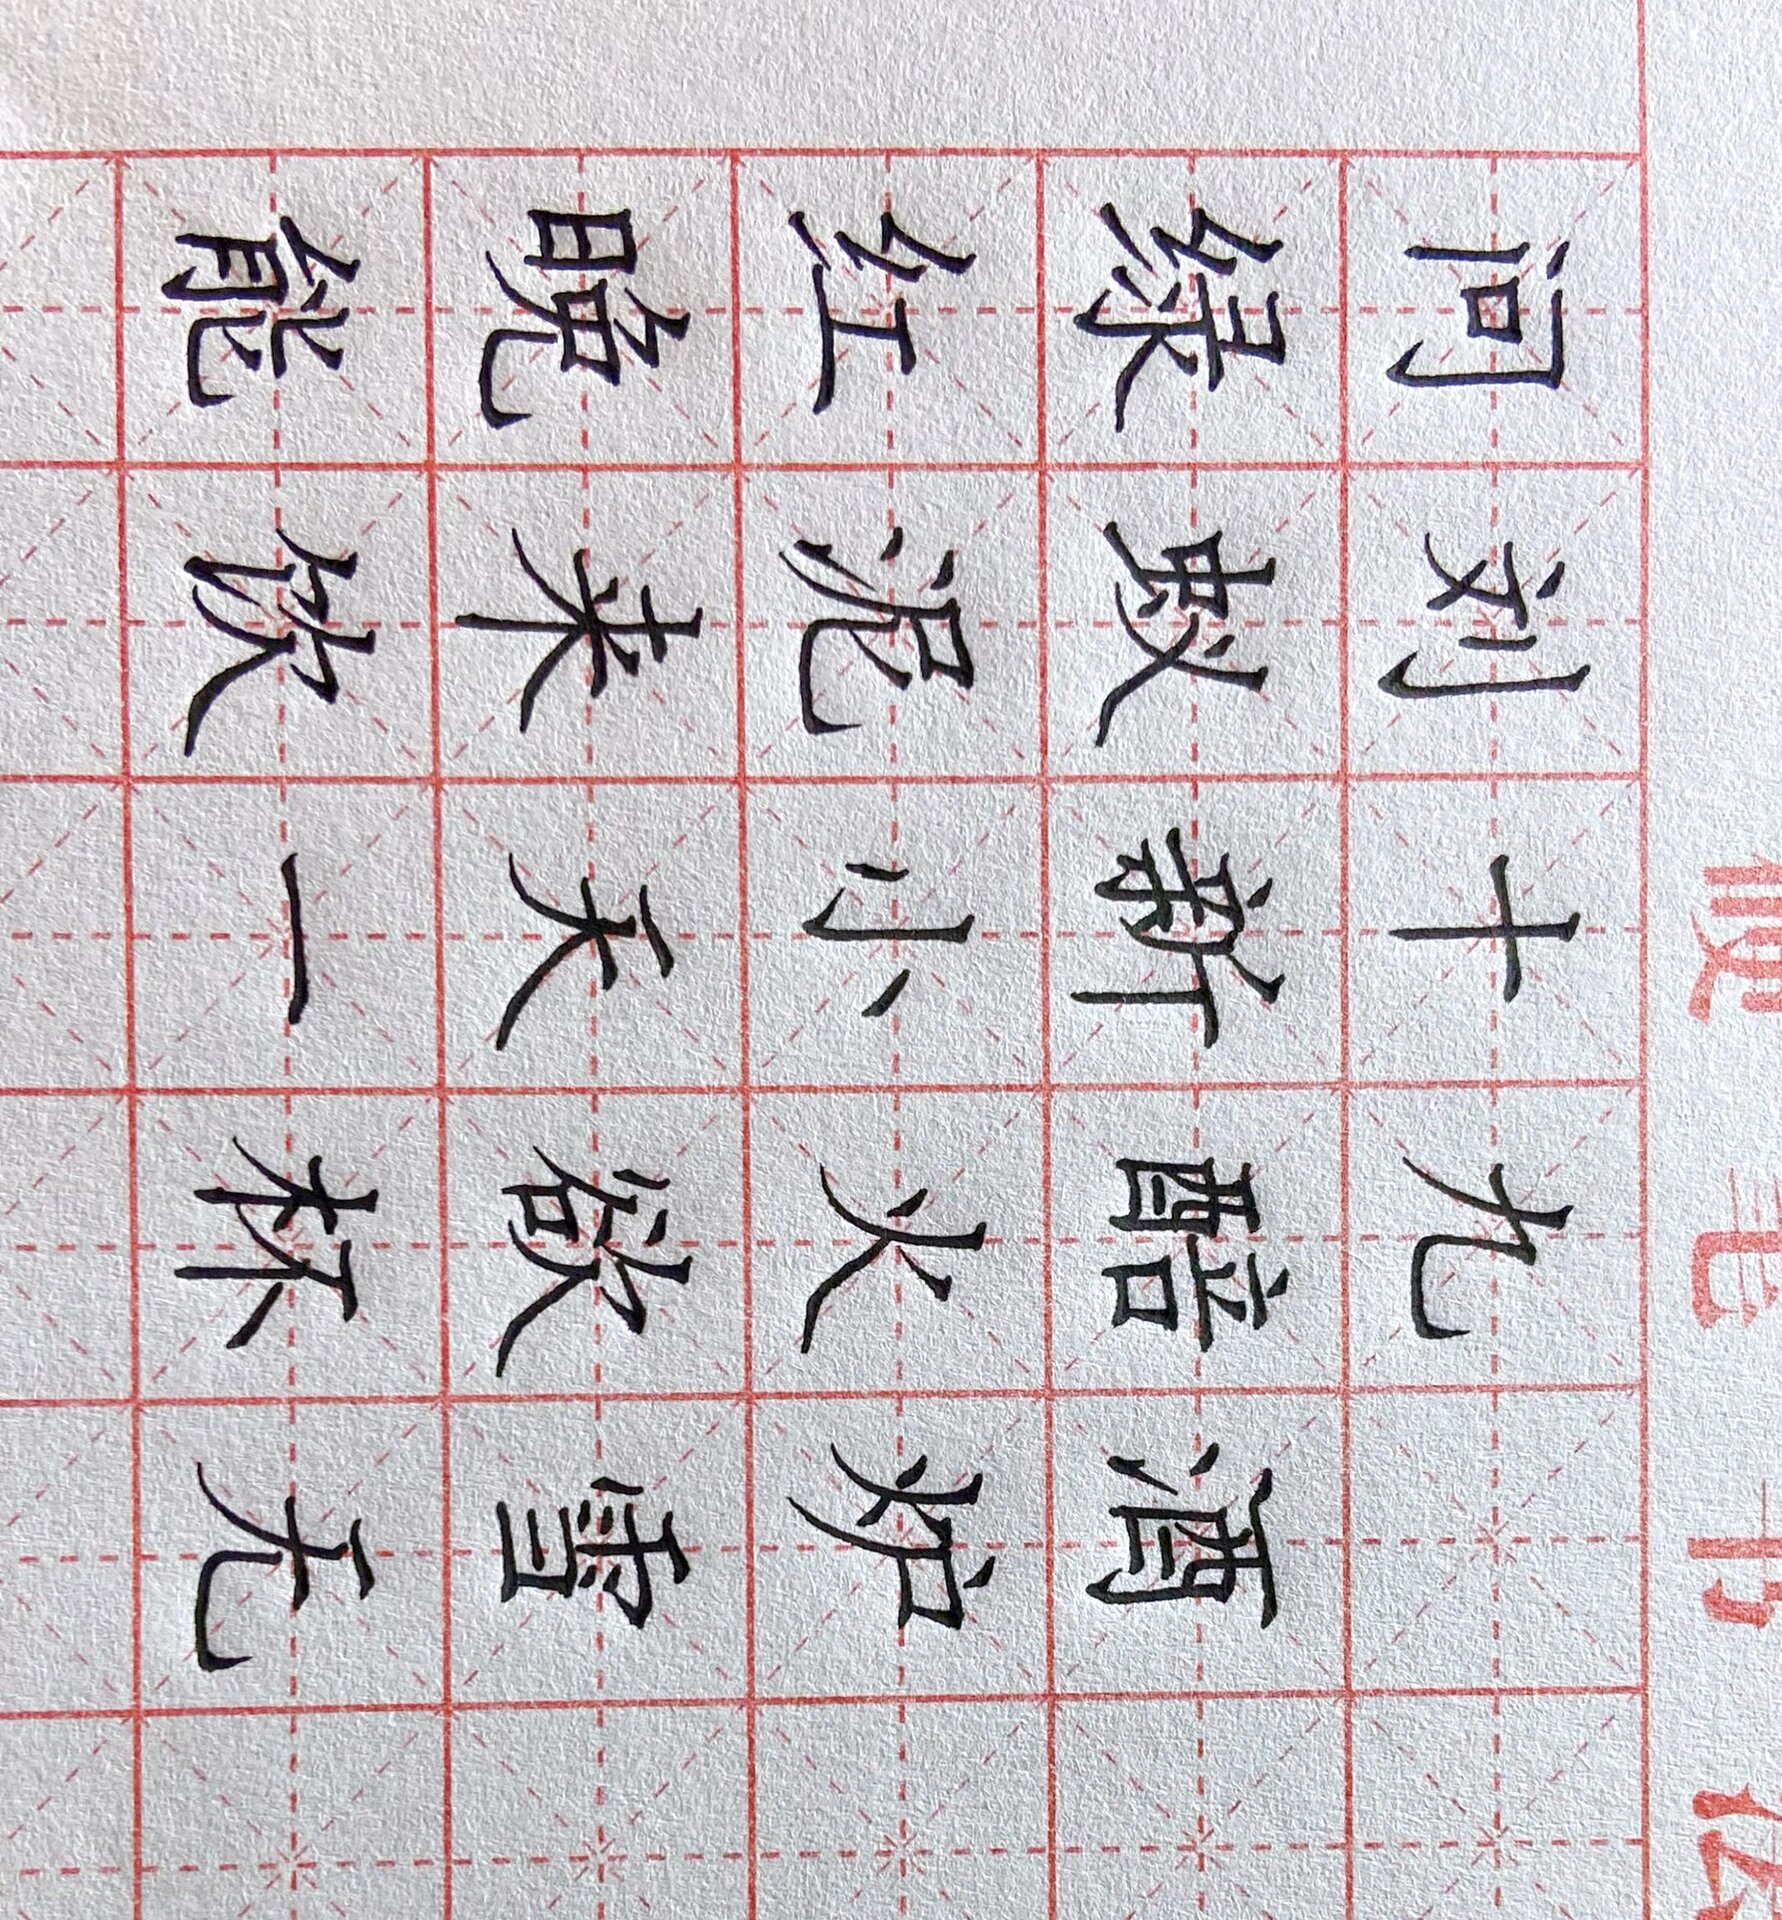 硬笔书法
问刘十九
绿蚁新醅酒
红泥小火炉
晚来天欲雪
能饮一杯无